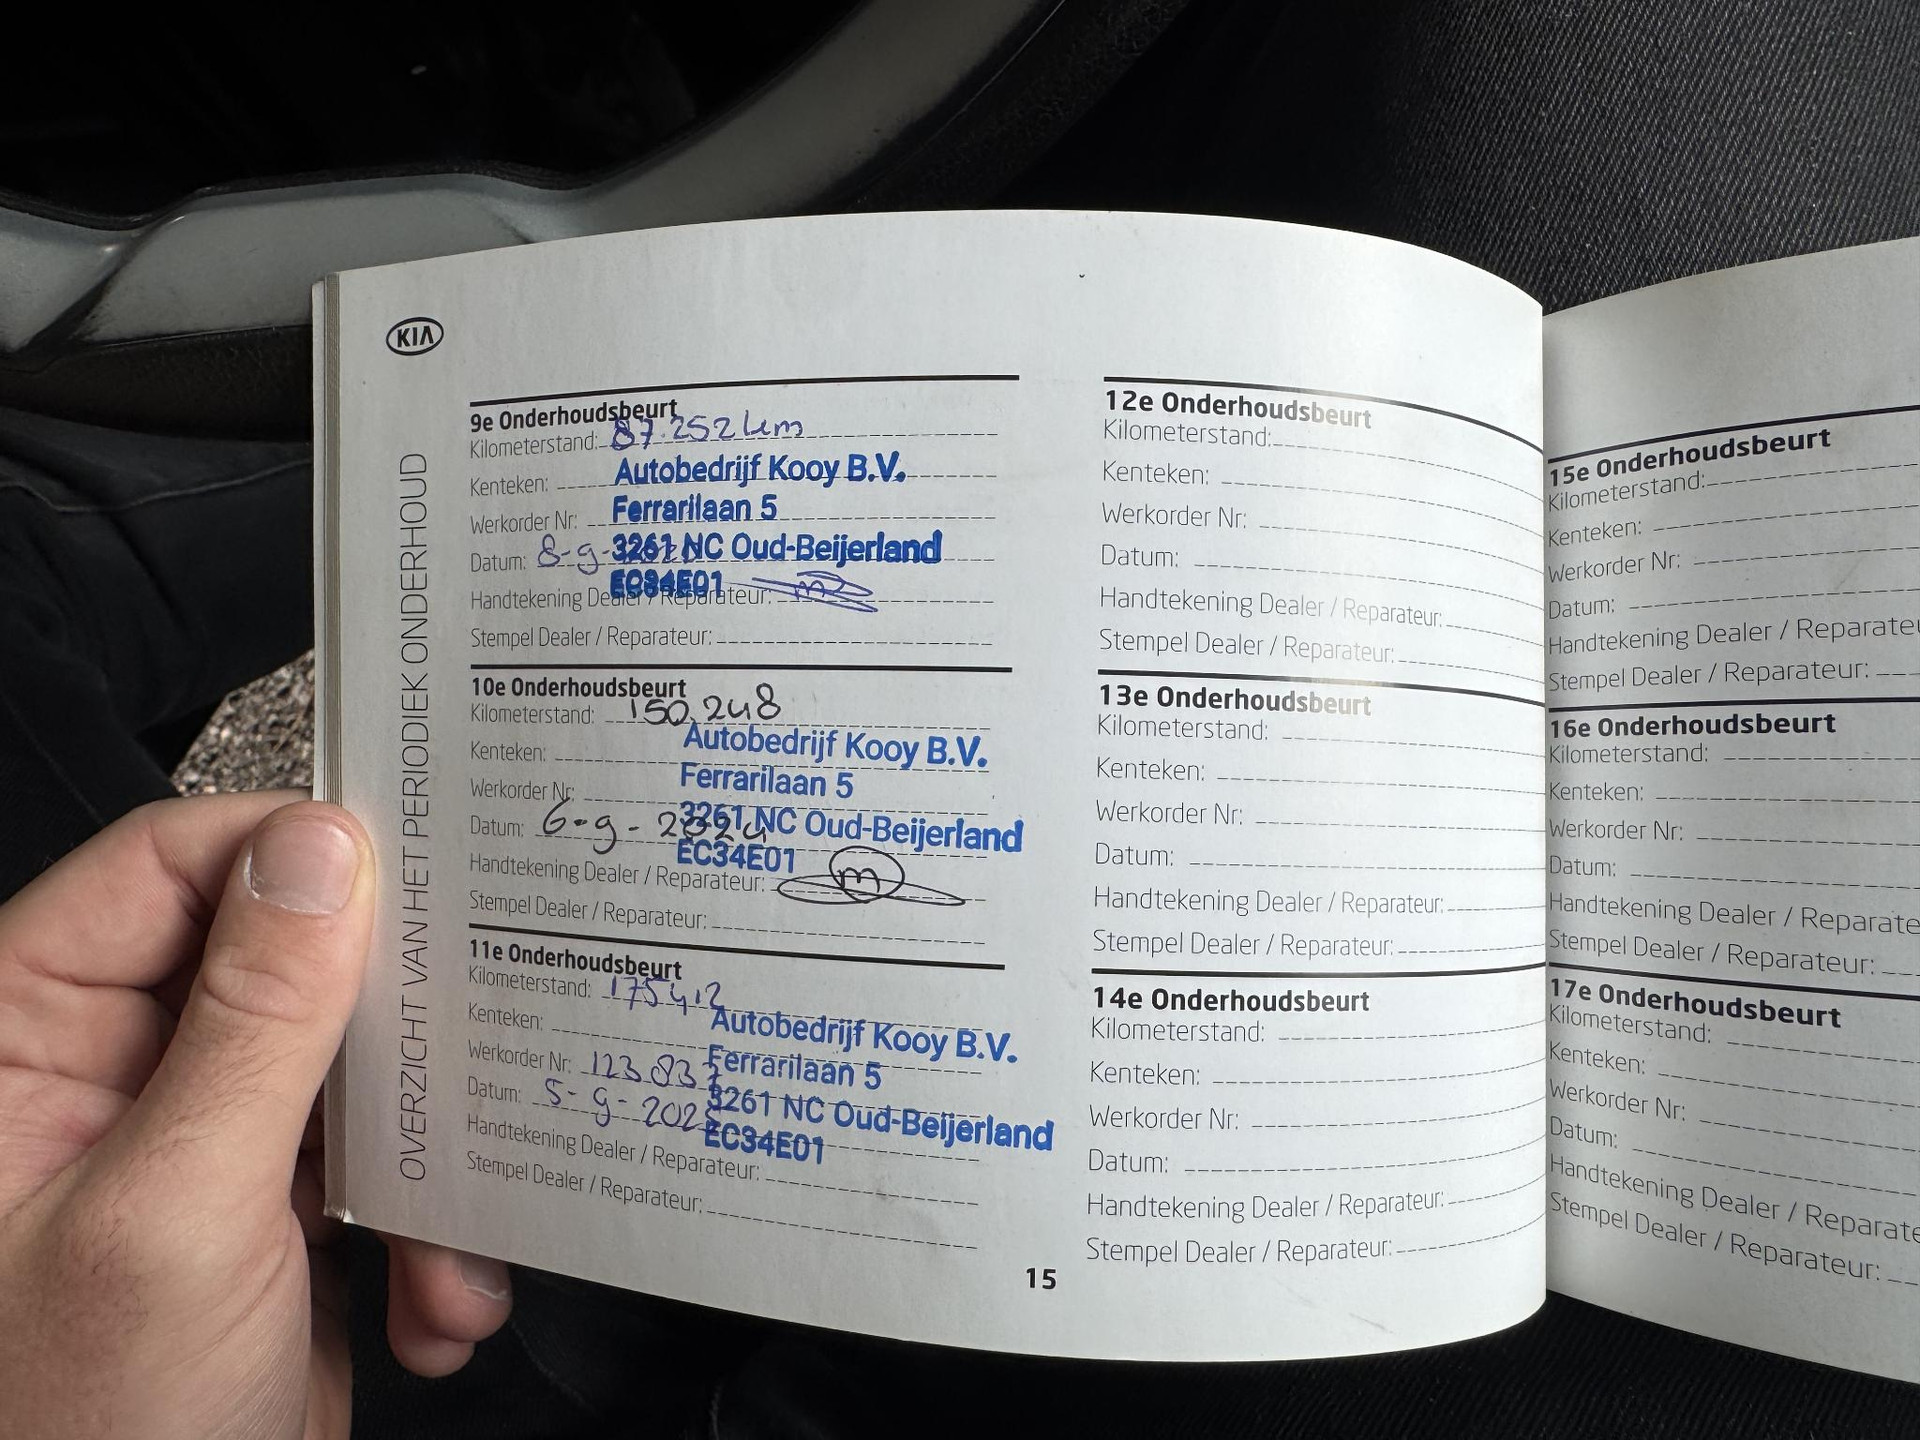 KIA
OVERZICHT VAN HET PERIODIEK ONDERHOUD
9e Onderhoudsbeurt
Kilometerstand: 87.252 km
Kenteken:
Autobedrijf Kooy B.V.
Werkorder Nr:
Ferrarilaan 5
Datum: 8-9-
3261 NC Oud-Beijerland
EC34E01
Handtekening Dealer / Reparateur: m
Stempel Dealer / Reparateur:
10e Onderhoudsbeurt
Kilometerstand: 150.248
Autobedrijf Kooy B.V.
Kenteken:
Ferrarilaan 5
Werkorder Nr:
3261 NC Oud-Beijerland
Datum: 6-9-2024
EC34E01
Handtekening Dealer / Reparateur: m
Stempel Dealer / Reparateur:
11e Onderhoudsbeurt
Kilometerstand: 175412
Autobedrijf Kooy B.V.
Kenteken:
Ferrarilaan 5
Werkorder Nr: 123.837
3261 NC Oud-Beijerland
Datum: 5-9-2025
EC34E01
Handtekening Dealer / Reparateur:
Stempel Dealer / Reparateur:
12e Onderhoudsbeurt
Kilometerstand:
Kenteken:
Werkorder Nr:
Datum:
Handtekening Dealer / Reparateur:
Stempel Dealer / Reparateur:
13e Onderhoudsbeurt
Kilometerstand:
Kenteken:
Werkorder Nr:
Datum:
Handtekening Dealer / Reparateur:
Stempel Dealer / Reparateur:
14e Onderhoudsbeurt
Kilometerstand:
Kenteken:
Werkorder Nr:
Datum:
Handtekening Dealer / Reparateur:
Stempel Dealer / Reparateur:
15
15e Onderhoudsbeurt
Kilometerstand:
Kenteken:
Werkorder Nr:
Datum:
Handtekening Dealer / Reparateu
Stempel Dealer / Reparateur:
16e Onderhoudsbeurt
Kilometerstand:
Kenteken:
Werkorder Nr:
Datum:
Handtekening Dealer / Reparate
Stempel Dealer / Reparateur:
17e Onderhoudsbeurt
Kilometerstand:
Kenteken:
Werkorder Nr:
Datum:
Handtekening Dealer / Reparate
Stempel Dealer / Reparateur: